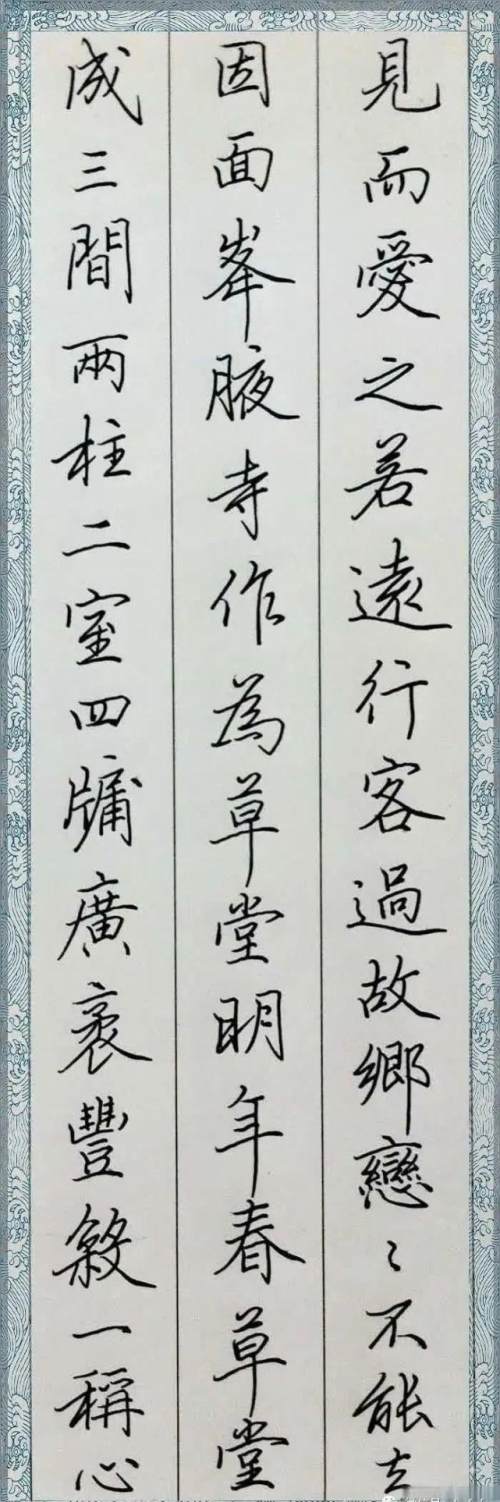 見而愛之若遠行客過故鄉戀〻不能去
因面峯腋寺作為草堂明年春草堂
成三間兩柱二室四牗廣袤豐殺一稱心